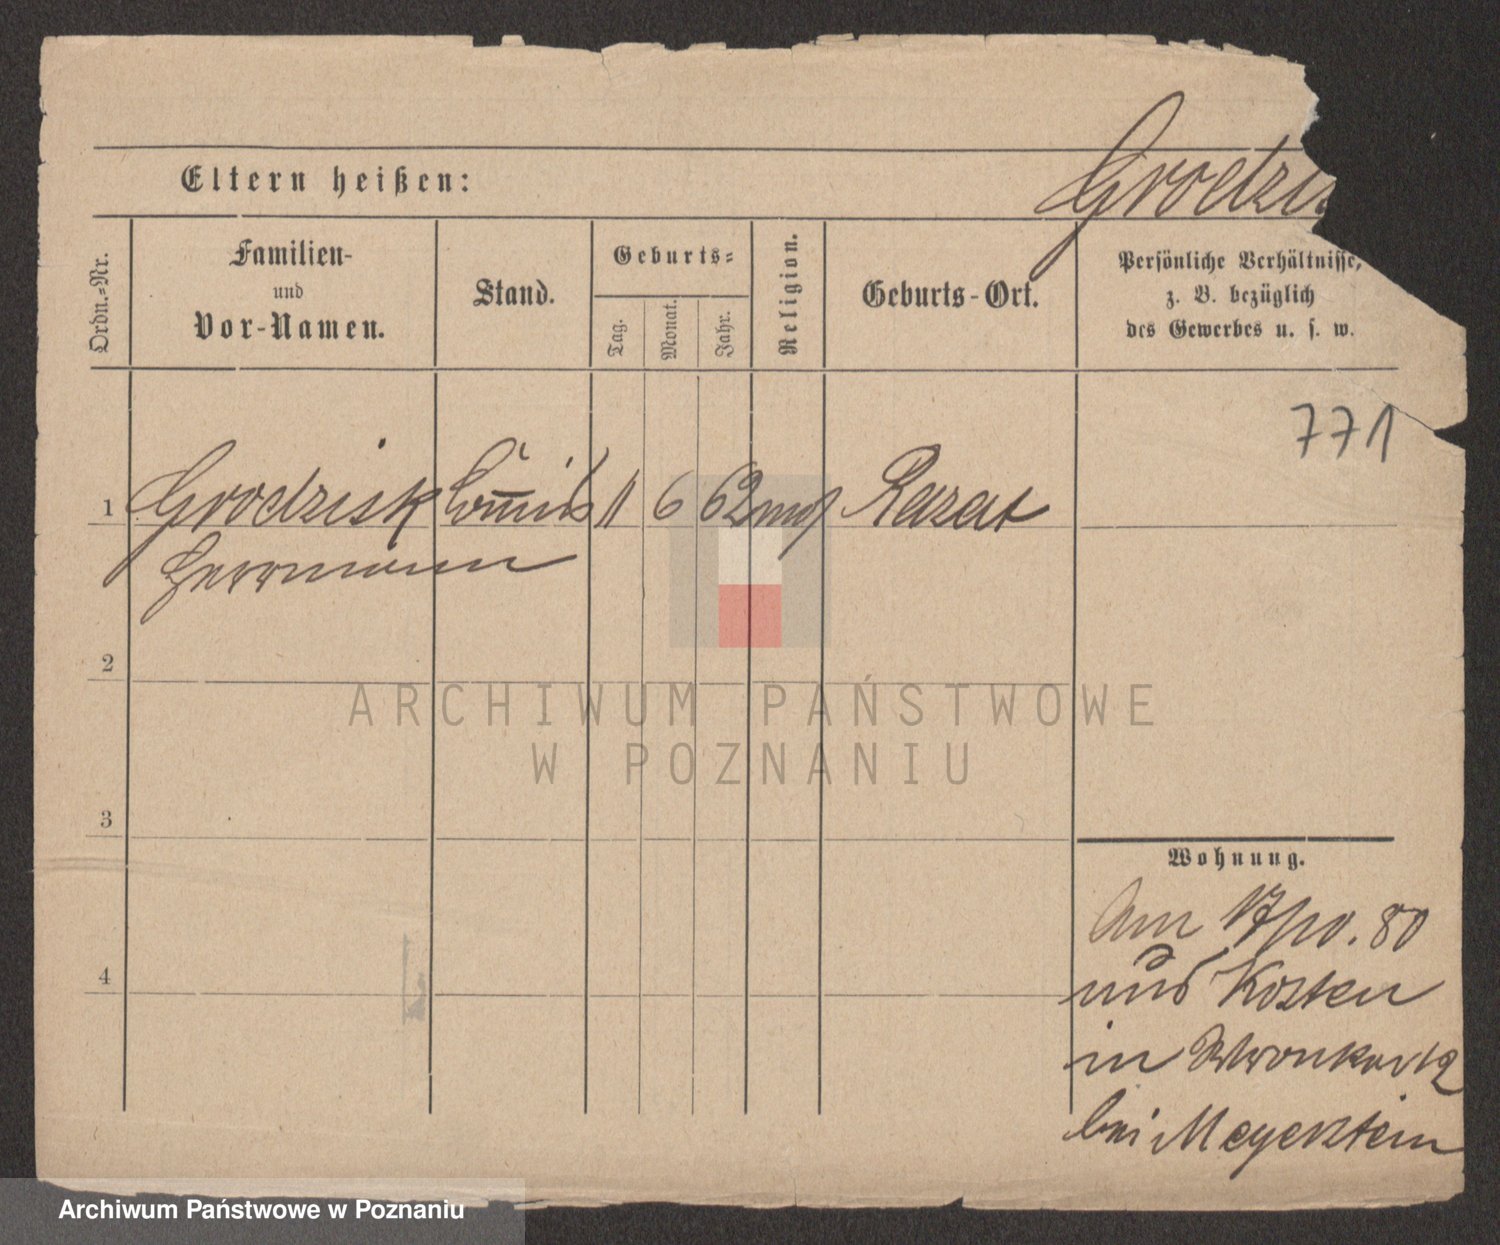 Eltern heißen:
Grodzis
Ordn.-Nr.
Familien-
und
Vor-Namen.
Stand.
Geburts-
Tag.
Monat.
Jahr.
Religion.
Geburts-Ort.
Persönliche Verhältnisse,
z. B. bezüglich
des Gewerbes u. s. w.
771
1 Grodzisk Com̅is 11 6 62 mos Razat
Herrmann
2
ARCHIWUM PAŃSTWOWE
W POZNANIU
3
Wohnung.
Am 17/10. 80
aus Kosten
in Wronker 12
bei Meyerstein
4
Archiwum Państwowe w Poznaniu